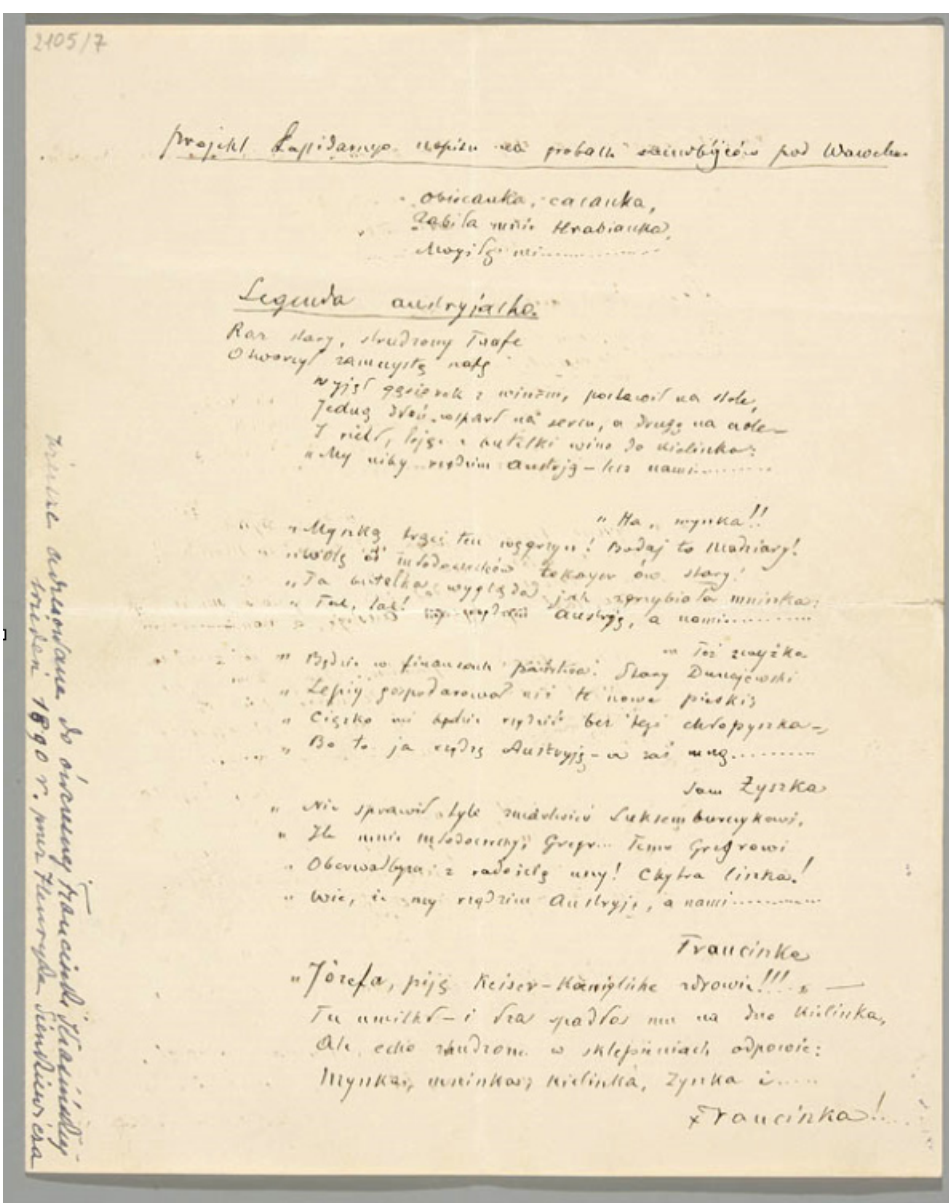 2105/7
projekt Lapidarnego napisu na grobach samobójców pod Wawelem
Obiecanka, cacanka,
Zabiła mnie Hrabianka,
Mogiłę mi............
Legenda austryjacka.
Raz stary, strudzony Taafe
Otworzył zamczystą szafę
Wyjął gąsiorek z winem, postawił na stole,
Jedną dłoń wsparł na sercu, a drugą na czole
I rzekł, lejąc z butelki wino do kielinka:
"My niby rządzim Austryją – lecz nami.........
"Ha, mynka!!
"Mynką trąci ten węgrzyn! Bodaj to Madziary!
"Wolę od młodoczechów tokayu ów stary!
"Ta butelka wygląda jak zgrzybiała mninka:
"Tak, tak! my rządzim Austryję, a nami............
"Też zwyżka
"Będzie w finansach państwa! Stary Dunajewski
"Lepiej gospodarował niż te nowe pieski
"Ciężko mi będzie rządzić bez tego chłopyszka –
"Bo to ja rządzę Austryją – a zaś mną..........
Sam Zyszka
"Nie sprawił tyle Luksemburczykowi,
"Ile mnie młodoczeski Gregr... Temu Gregrowi
"Oberwałbym z radością uszy! Chytra linka!
"Wie, że my rządzim Austryję, a nami............
Francinka
"Józefa, piję Keiser-Königliche zdrowie!!!" —
Tu umilkł – i łza spadła mu na dno kielinka,
Ale echo zbudzone w sklepieniach odpowie:
Mynka, mninka, kielinka, Zynka i.....
Francinka!...
wiersze adresowane do ówczesnej Francinki
Wiedeń 1890 r. przez Henryka Sienkiewicza